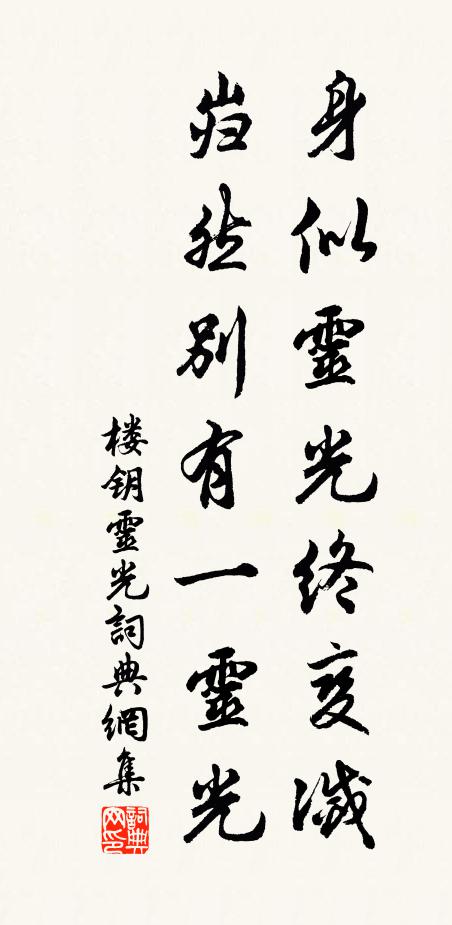 身似靈光終变滅
岿然別有一靈光
楼钥靈光詞典網集
詞典网印